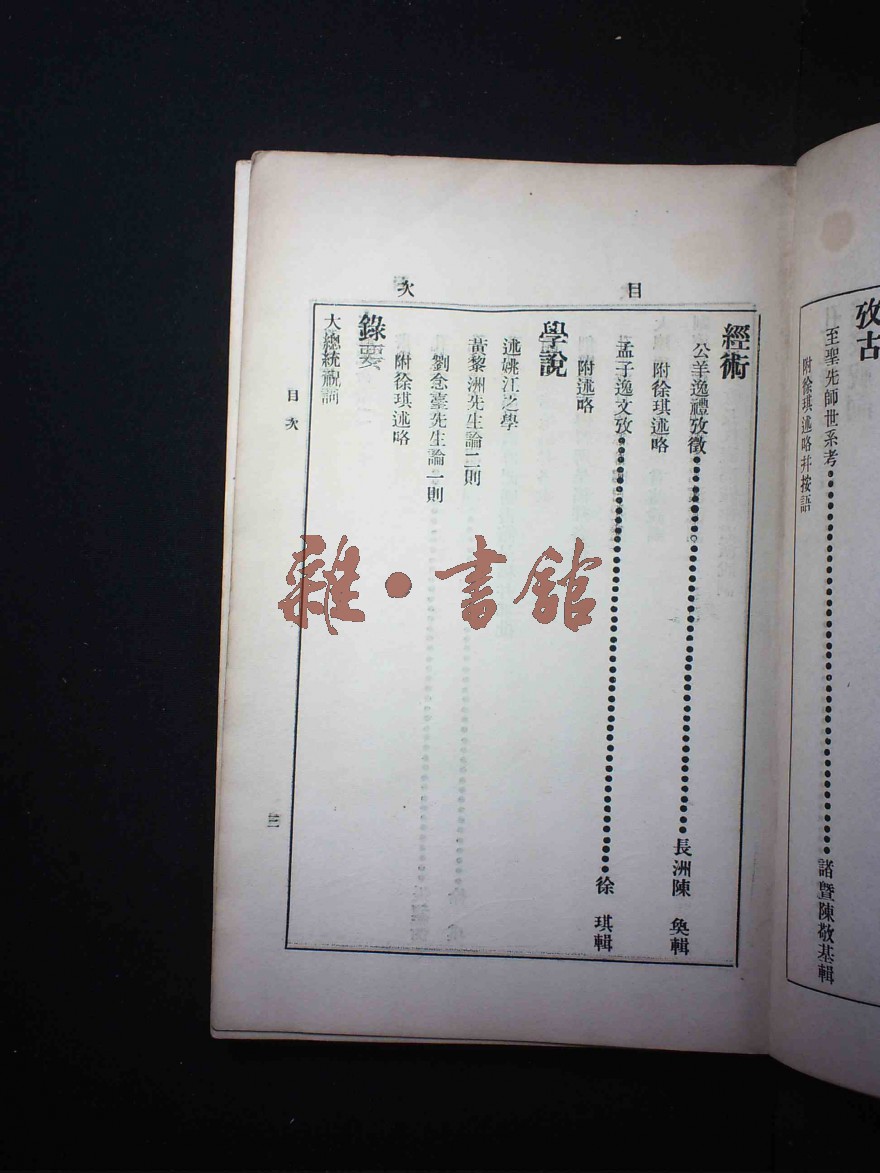 攷古
至聖先師世系考 諸暨陳敬基輯
附徐琪述略幷按語
目次
經術
公羊逸禮攷徵 長洲陳奐輯
附徐琪述略
孟子逸文攷 徐琪輯
附述略
學說
述姚江之學
黃黎洲先生論二則
劉念臺先生論一則
附徐琪述略
錄要
大總統祝詞
目次
三
雜·書館